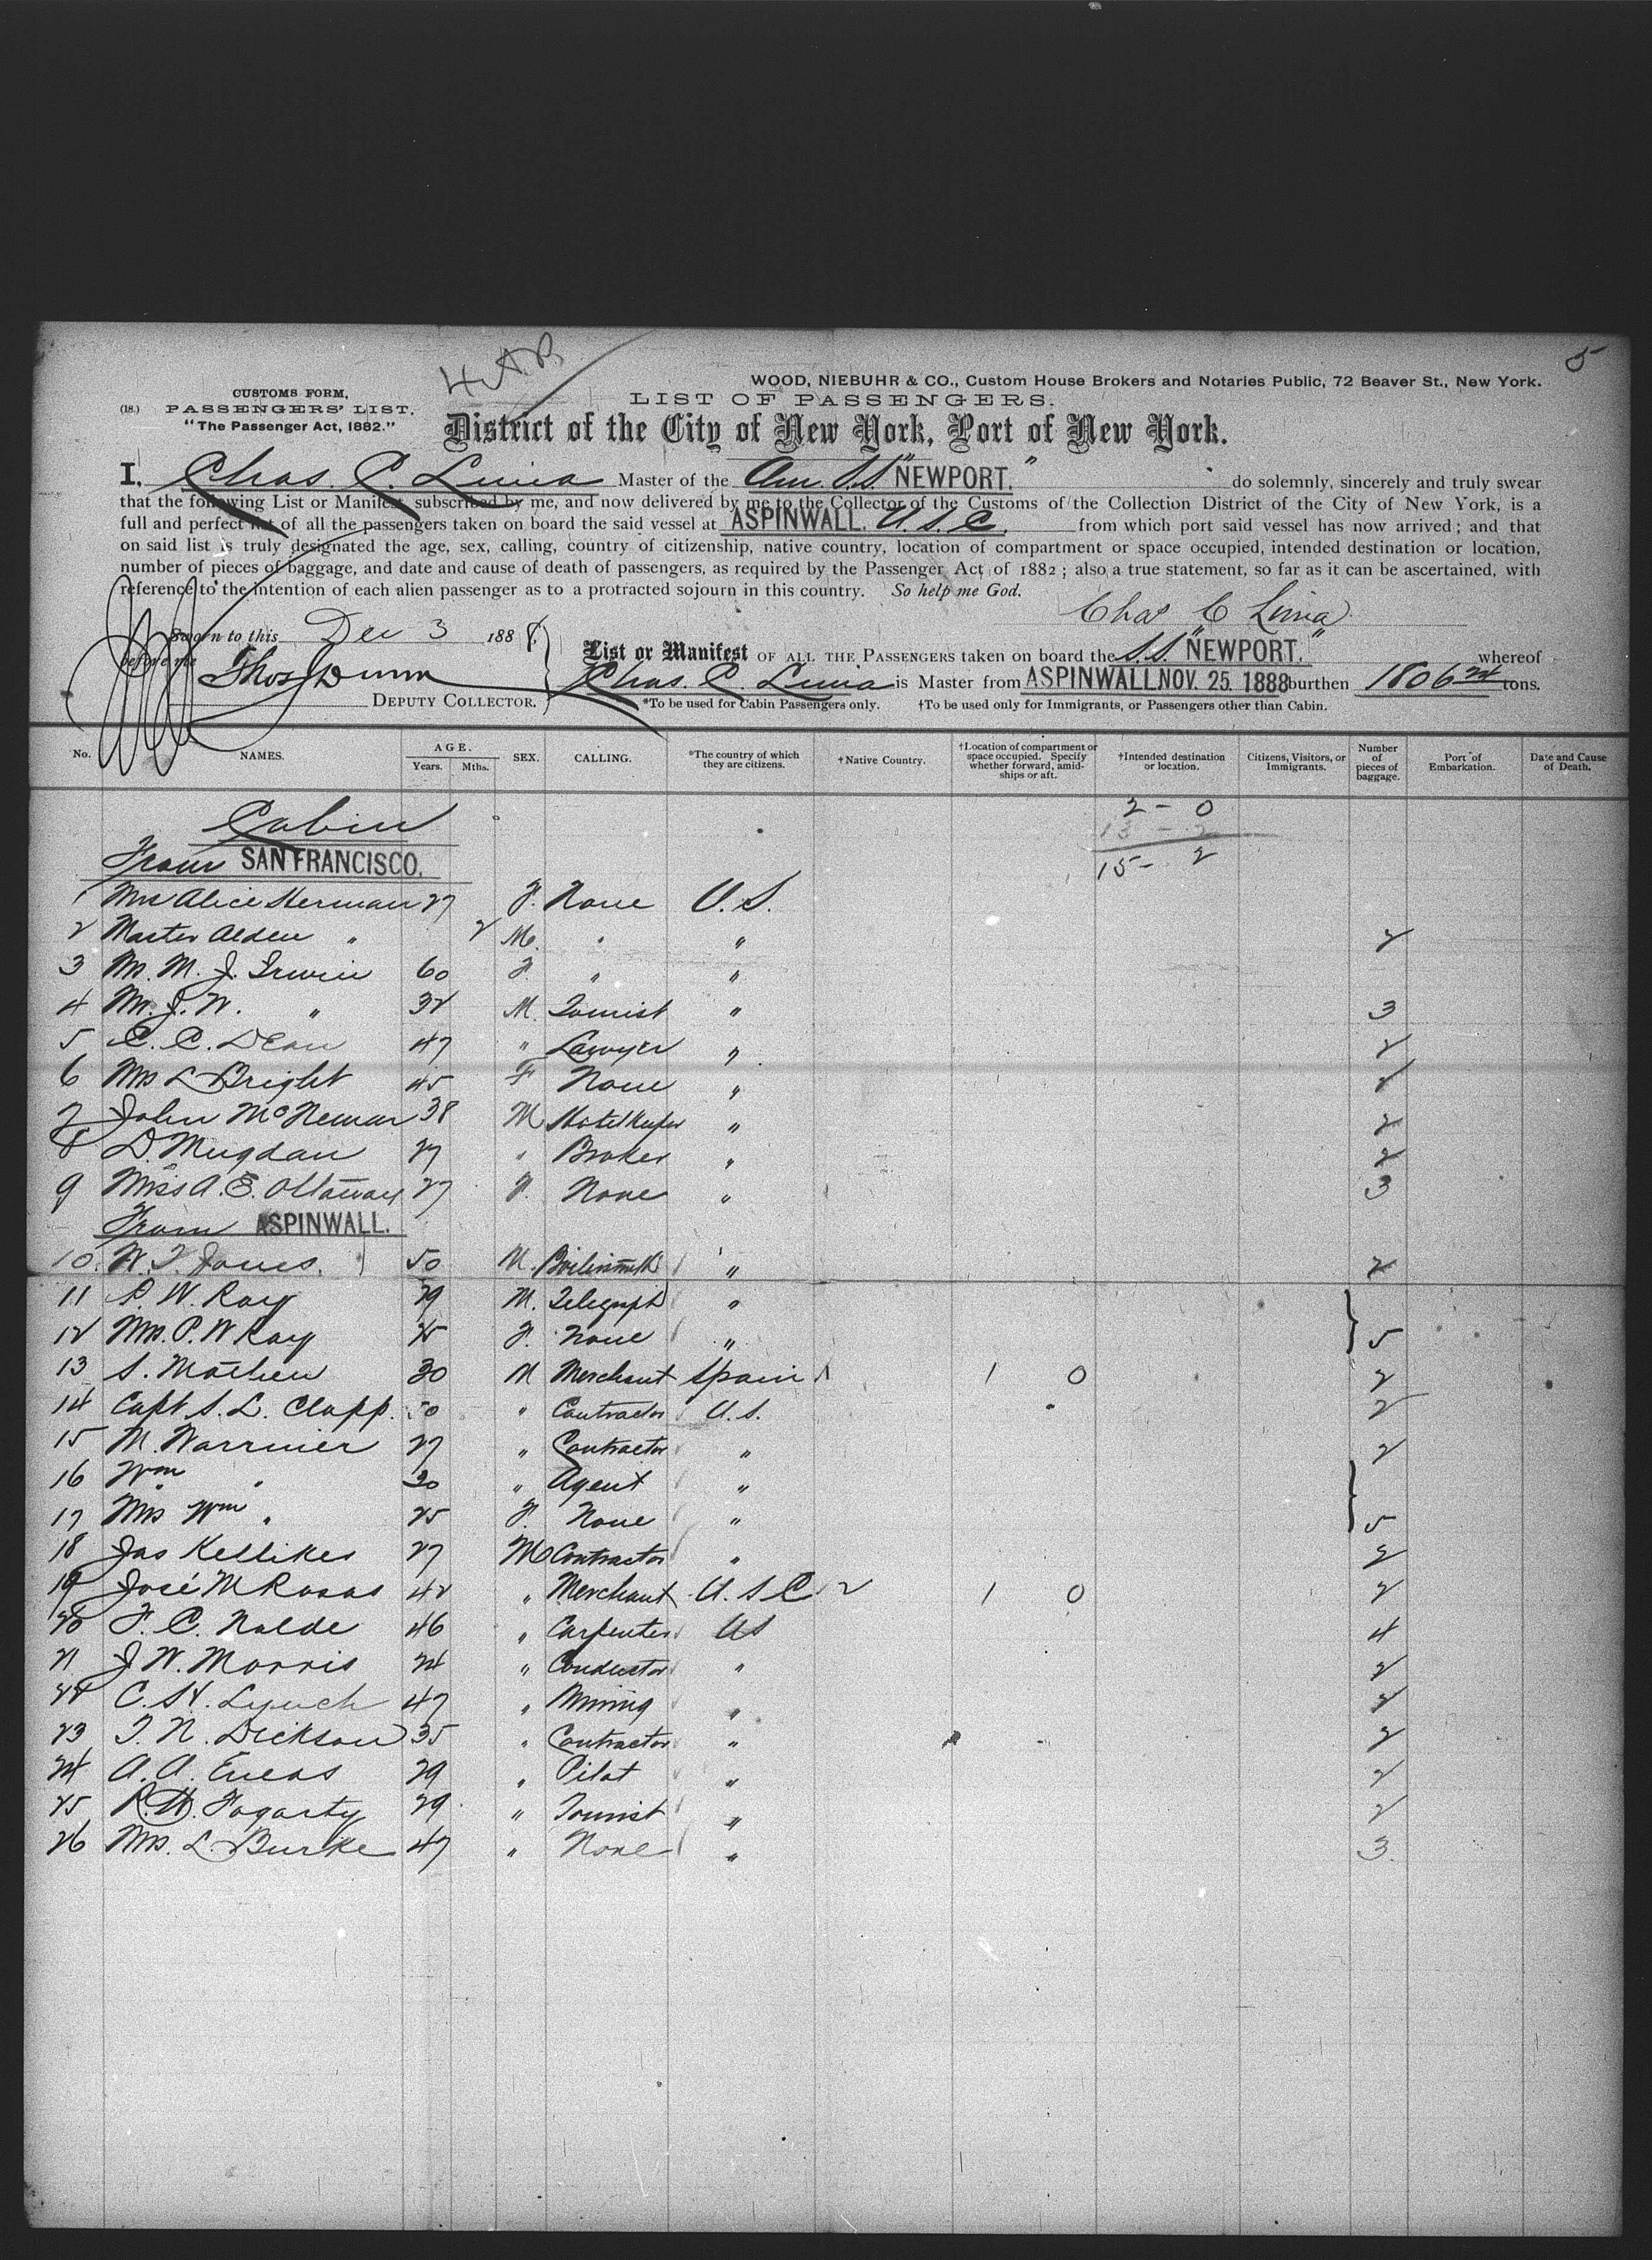 5
H.A.B.
WOOD, NIEBUHR & CO., Custom House Brokers and Notaries Public, 72 Beaver St., New York.
CUSTOMS FORM,
(18.) PASSENGERS' LIST.
"The Passenger Act, 1882."
LIST OF PASSENGERS.
District of the City of New York, Port of New York.
I, Chas. C. Lima Master of the Am. S.S. "NEWPORT." do solemnly, sincerely and truly swear
that the following List or Manifest, subscribed by me, and now delivered by me to the Collector of the Customs of the Collection District of the City of New York, is a
full and perfect list of all the passengers taken on board the said vessel at ASPINWALL. U.S.C. from which port said vessel has now arrived; and that
on said list is truly designated the age, sex, calling, country of citizenship, native country, location of compartment or space occupied, intended destination or location,
number of pieces of baggage, and date and cause of death of passengers, as required by the Passenger Act of 1882; also a true statement, so far as it can be ascertained, with
reference to the intention of each alien passenger as to a protracted sojourn in this country. So help me God.
Chas C Lima
Sworn to this Dec 3 1888.
before me Thos Dunn
DEPUTY COLLECTOR.
List or Manifest OF ALL THE PASSENGERS taken on board the S.S. "NEWPORT." whereof
Chas. C. Lima is Master from ASPINWALL NOV. 25. 1888 burthen 1806 24 tons.
*To be used for Cabin Passengers only. †To be used only for Immigrants, or Passengers other than Cabin.
No. NAMES. AGE. Years. Mths. SEX. CALLING. *The country of which they are citizens. †Native Country. †Location of compartment or space occupied. Specify whether forward, amidships or aft. †Intended destination or location. Citizens, Visitors, or Immigrants. Number of pieces of baggage. Port of Embarkation. Date and Cause of Death.
Cabin 2 - 0
13 - 2
From SAN FRANCISCO. 15 - 2
1 Mrs Alice Herman 27 F. None U.S.
2 Master Alden " 2 M. " " 2
3 M. M. J. Irwin 60 F. " "
4 Mr. J. W. " 32 M. Tourist " 3
5 C. C. Dean 47 " Lawyer " 2
6 Mrs L Bright 45 F None " 2
7 John McNemar 38 M Hotel Keeper " 2
8 D. Mugdan 27 " Broker " 2
9 Miss A. E. Ottaway 27 F. None " 3
From ASPINWALL.
10. W. T. Jones. 50 M. Boilersmith " 2
11 P. W. Ray 29 M. Telegraph "
12 Mrs. P. W Ray 25 F. None " } 5
13 S. Mathew 30 M Merchant Spain 1 1 0 2
14 Capt S. L. Clapp. 50 " Contractor U.S. 2
15 M. Warrnier 27 " Contractor " 2
16 Wm " 30 " Agent "
17 Mrs Wm " 25 F. None " } 5
18 Jas Kellikes 27 M Contractor " 2
19 José M Rosas 42 " Merchant U.S.C 2 1 0 2
20 F. C. Nalde 46 " Carpenter US 4
21 J W. Morris 24 " Conductor " 2
22 C. H. Lynch 47 " Mining " 2
23 T. N. Dickson 35 " Contractor " 2
24 A. A. Eneas 29 " Pilot " 2
25 R. W. Fogarty 29 " Tourist " 2
26 Mrs. L. Burke 47 " None " 3.